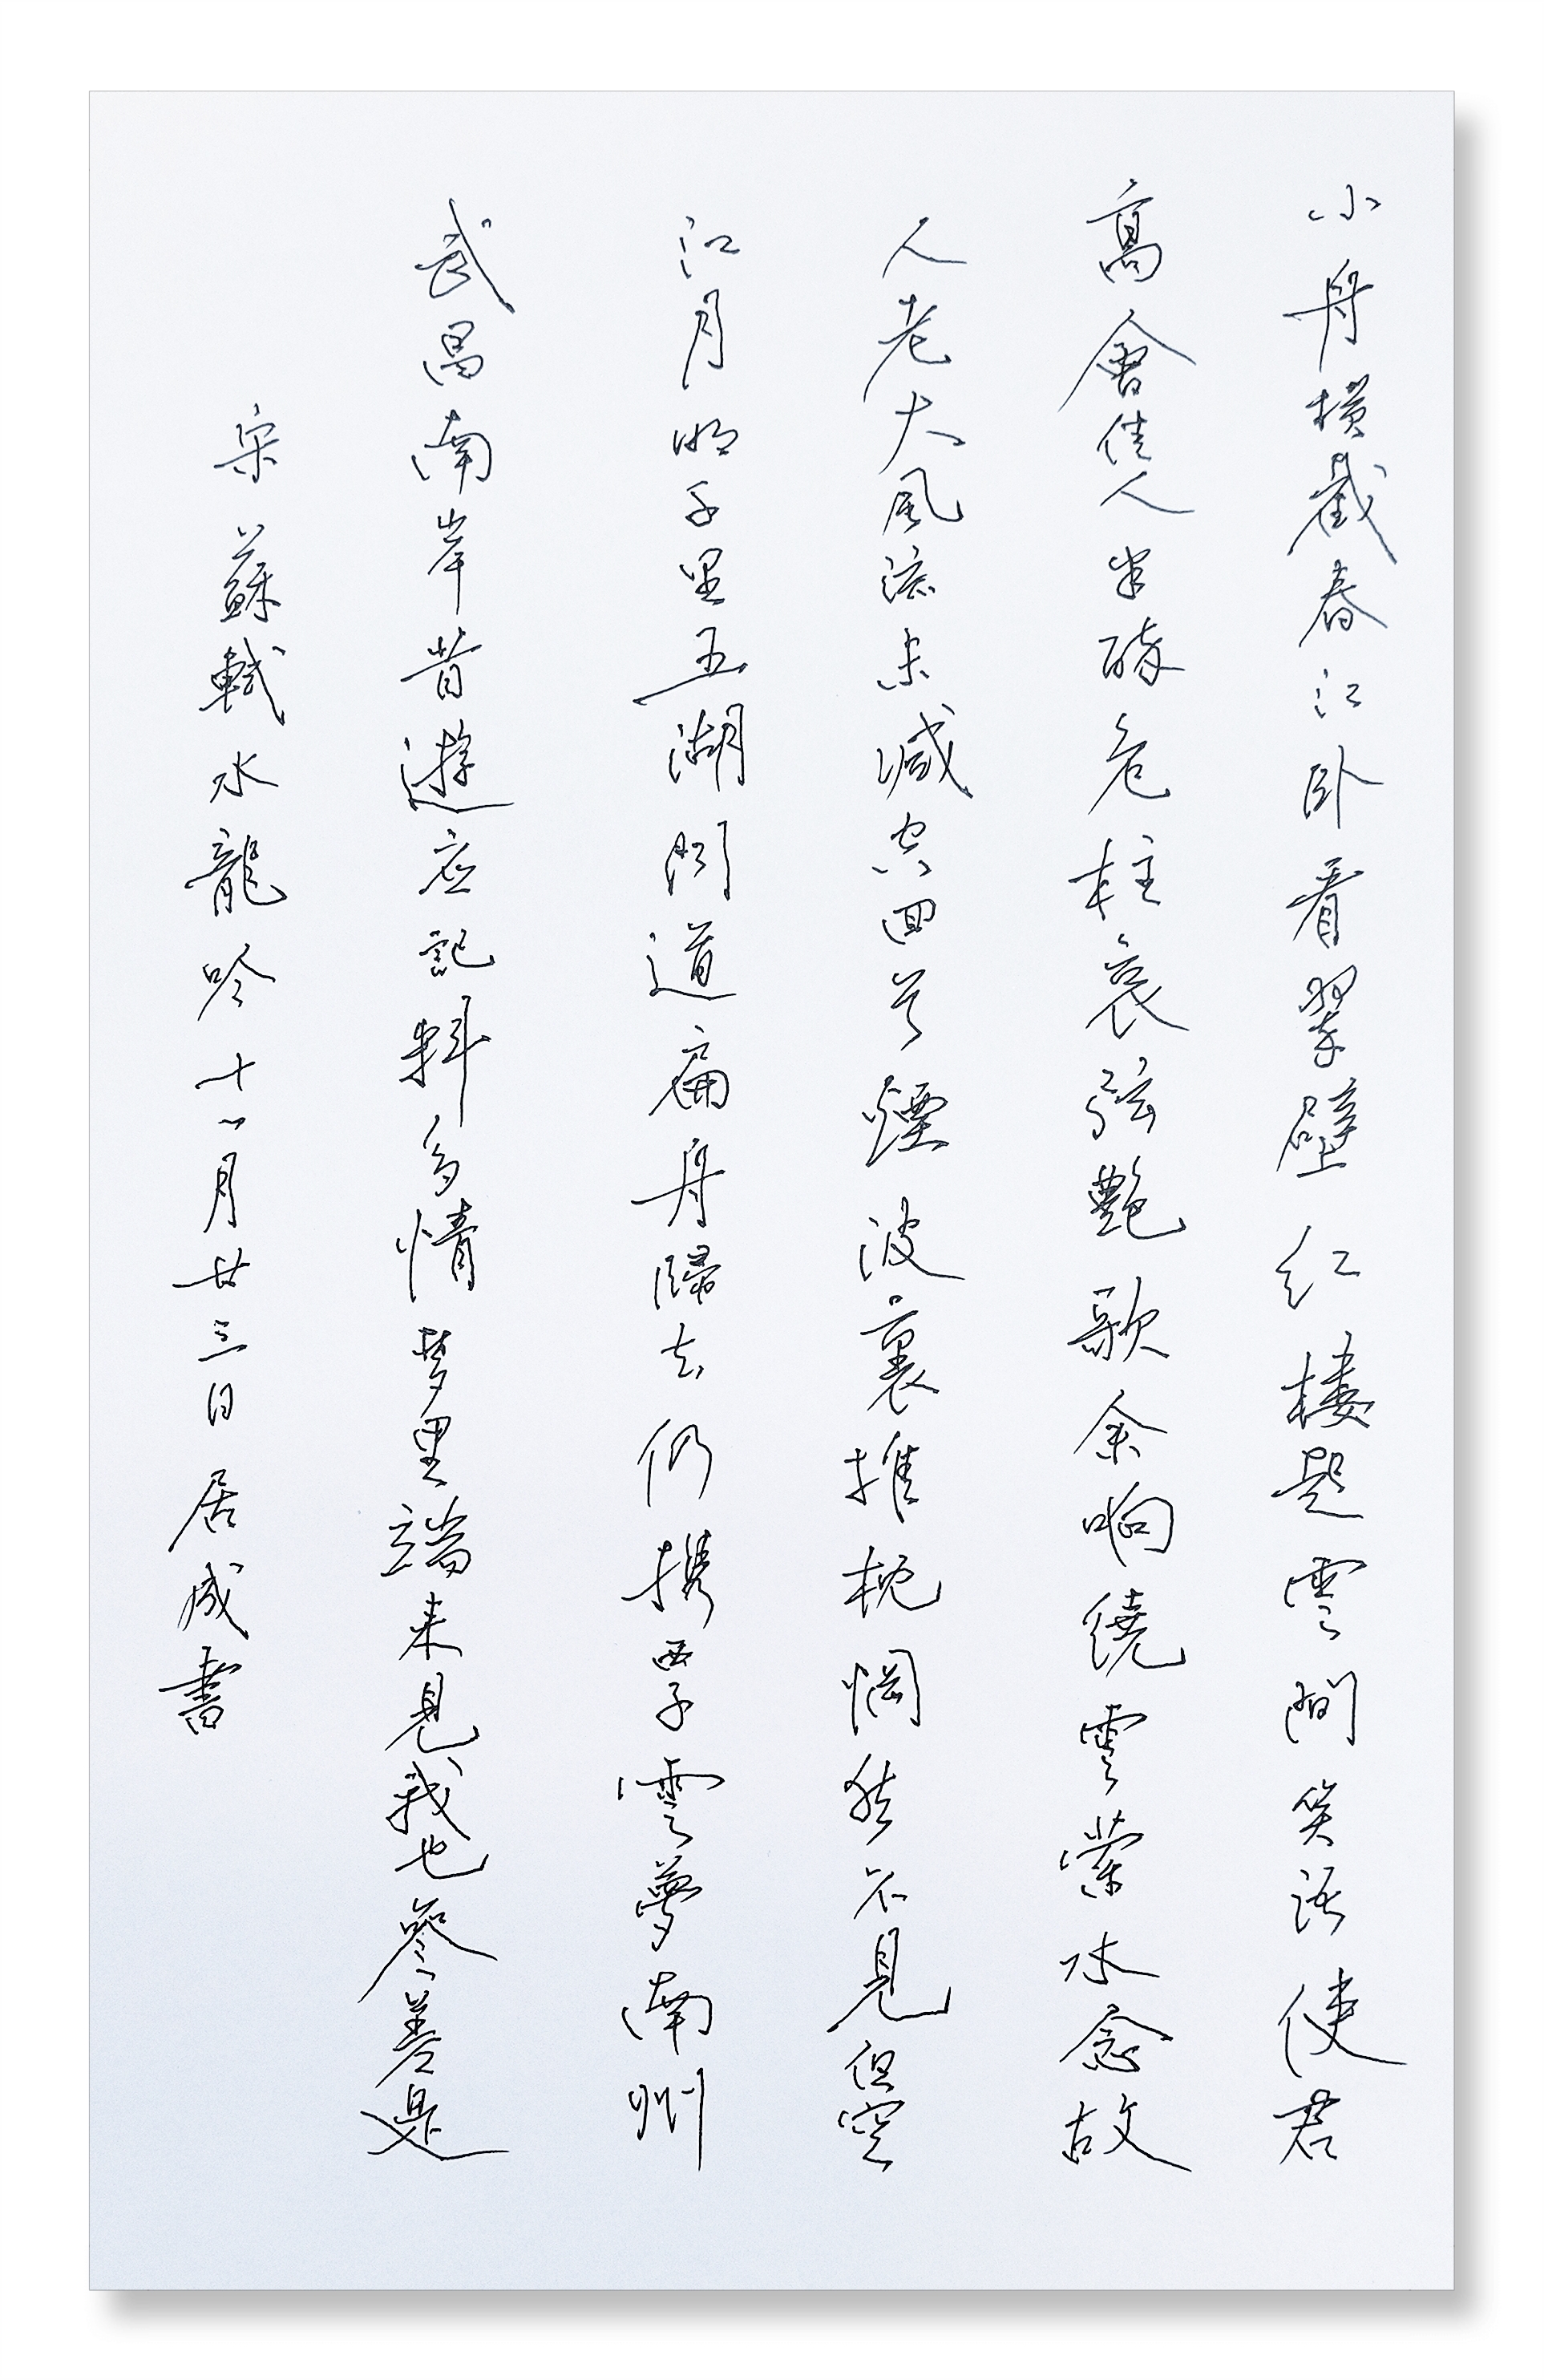 小舟橫截春江卧看翠壁红樓起雲間笑语使君
髙會佳人半醉危柱哀弦艶歌余响繞雲縈水念故
人老大風流未減空回首煙波裏推枕惘然不見但空
江月明千里五湖聞道扁舟歸去仍携西子雲夢南州
武昌南岸昔遊应記料多情梦里端来見我也參差是
宋蘇軾水龍吟十一月廿三日居成書